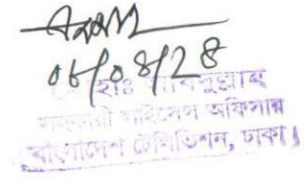 ০৮/০৪/২৪
সহকারী লাইসেন্স অফিসার
বাংলাদেশ টেলিভিশন, ঢাকা।